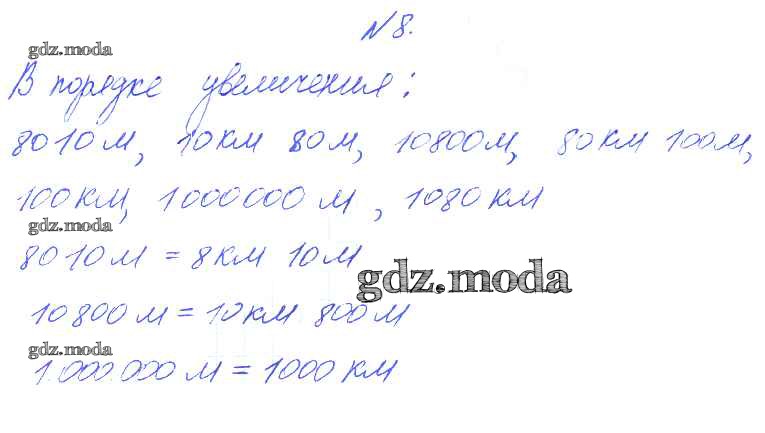 N8.
gdz.moda
В порядке увеличения:
8010 м, 10 км 80 м, 10800 м, 80 км 100 м,
100 км, 1000000 м, 1080 км
gdz.moda
8010 м = 8 км 10 м
gdz.moda
10800 м = 10 км 800 м
gdz.moda
1.000.000 м = 1000 км